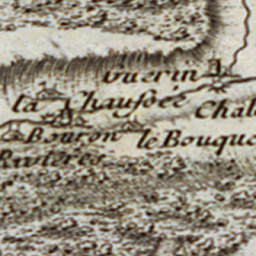 Guerin
la Chaussée
Chal
Bouron
le Bouque
Rivieres